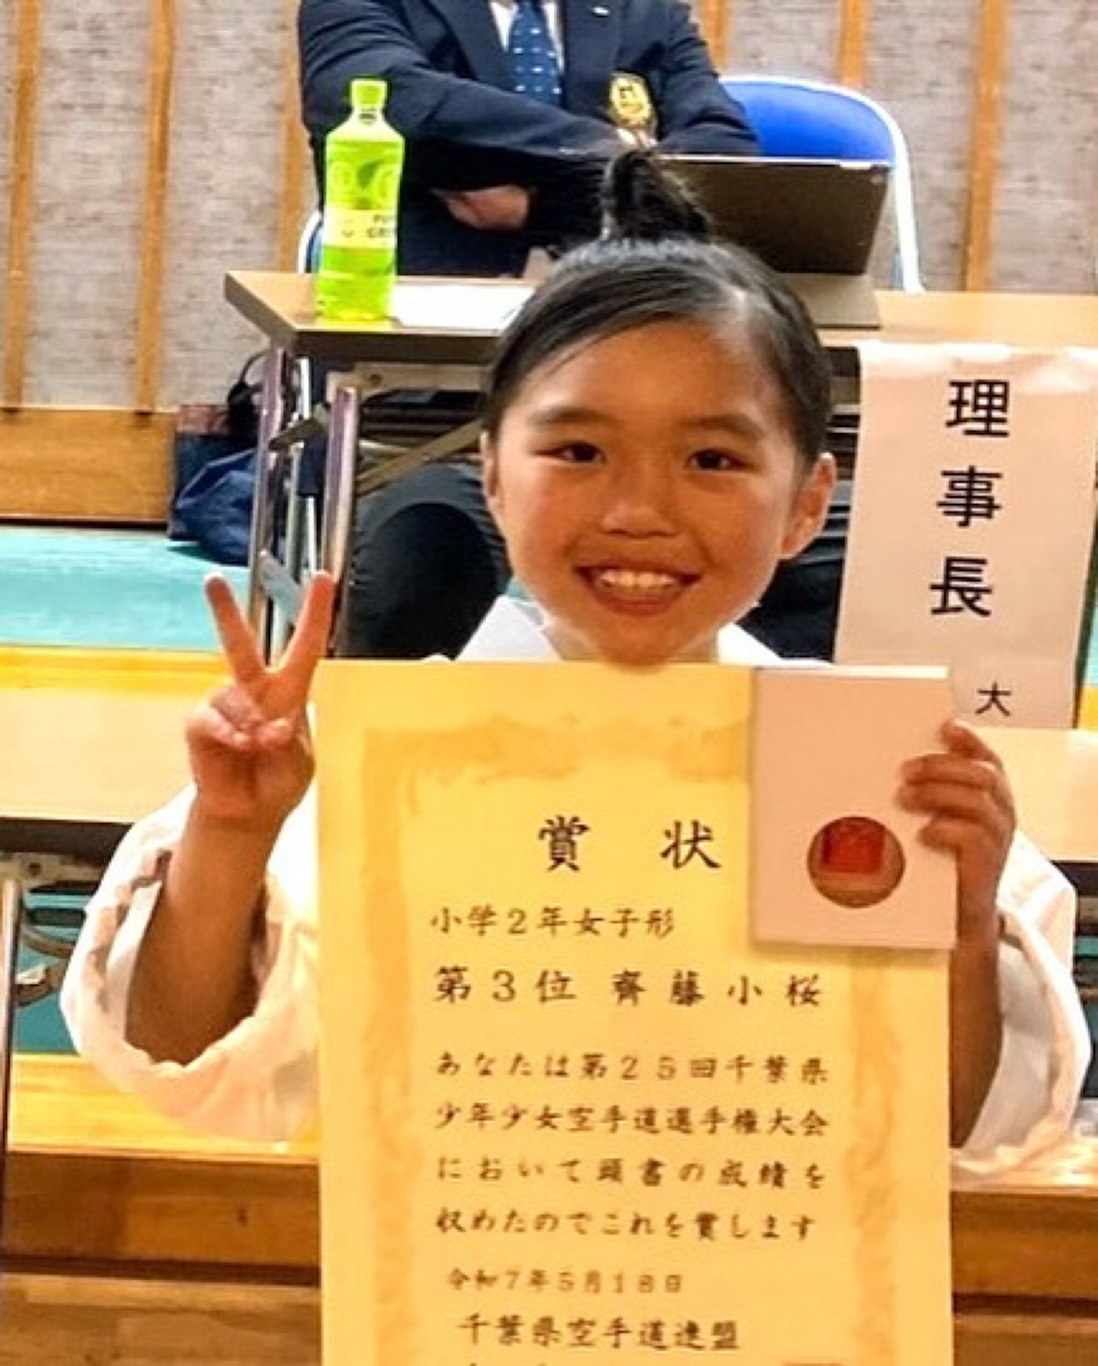 理事長
大
賞状
小学2年女子形
第3位 齊藤小桜
あなたは第25回千葉県
少年少女空手道選手権大会
において頭書の成績を
収めたのでこれを賞します
令和7年5月18日
千葉県空手道連盟